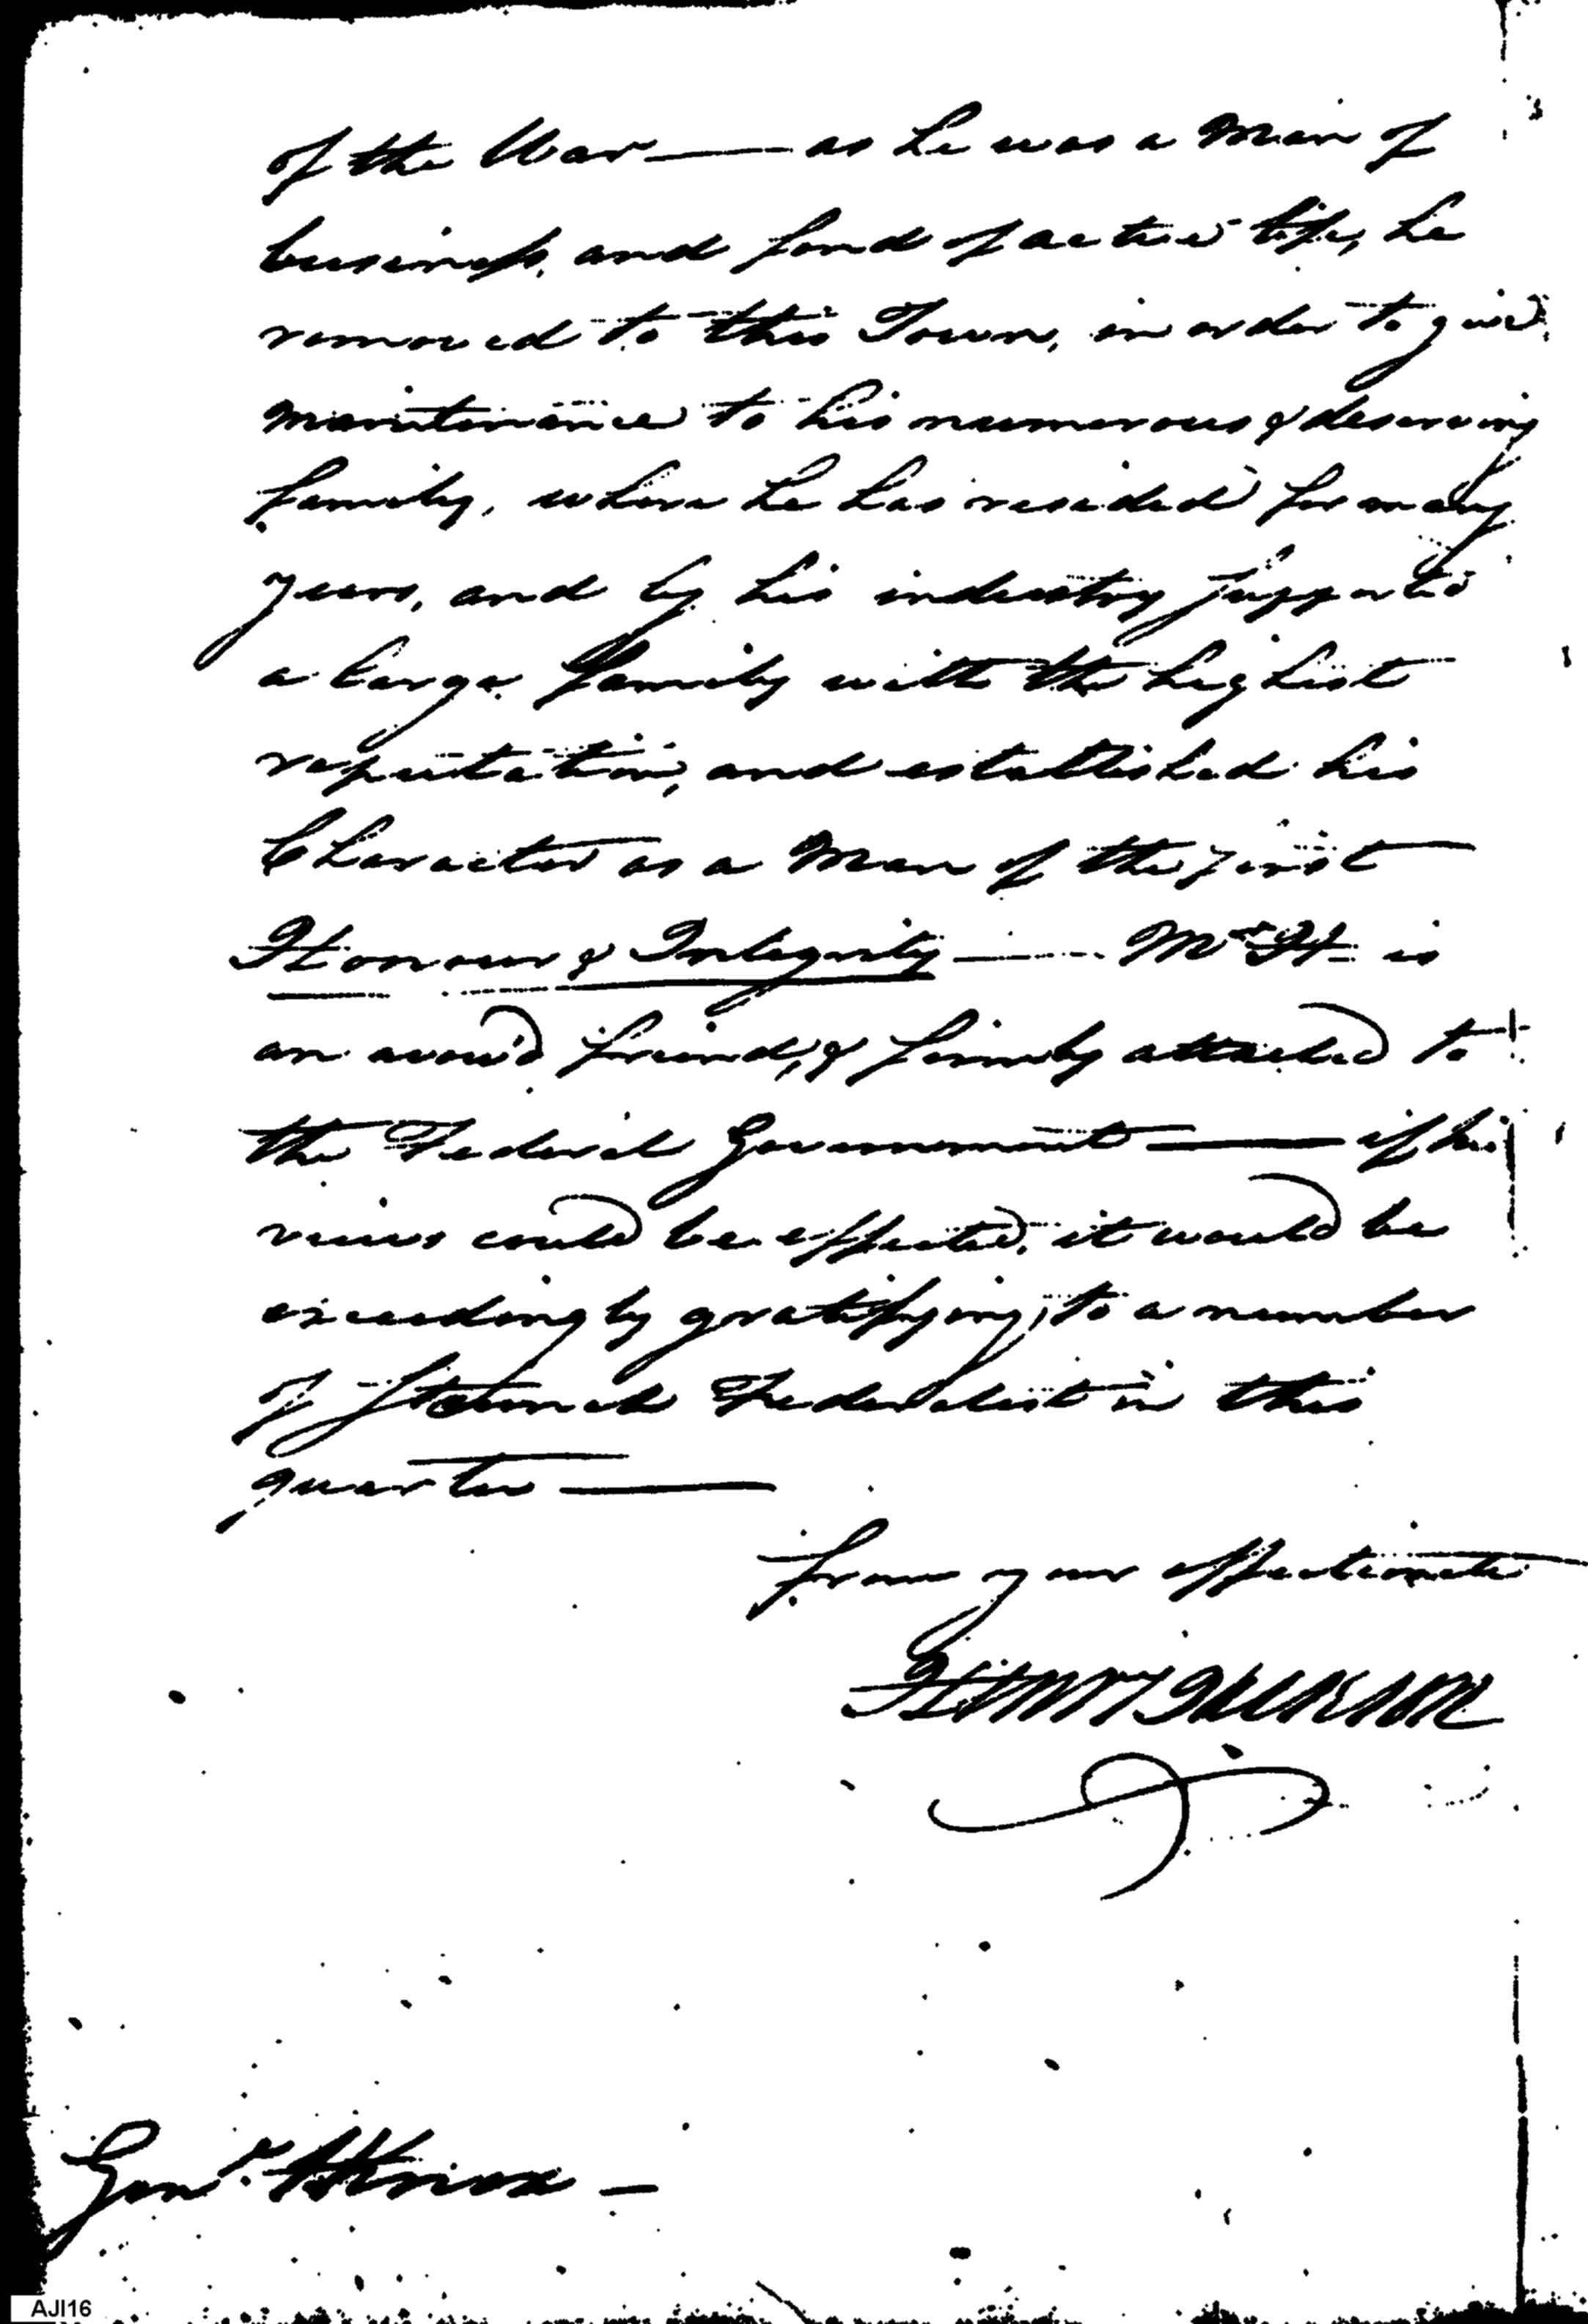 of the War — as he was a Man of
business, and fond of active life, he
removed to this Town, in order to give
maintenance to his numerous & deserving
family, where he has resided for many
years, and by his industry supported
a large family with the highest
reputation, and established his
Character as a Man of the first
Honour & Integrity — Mr H is
an avow'd friend, & firmly attached to
the Federal Government — if his
views could be effected, it would be
exceedingly gratifying, to a number
of staunch Federalist in this
quarter —
from your affectionate
Henry Jackson
Genl. H Knox —
AJI16